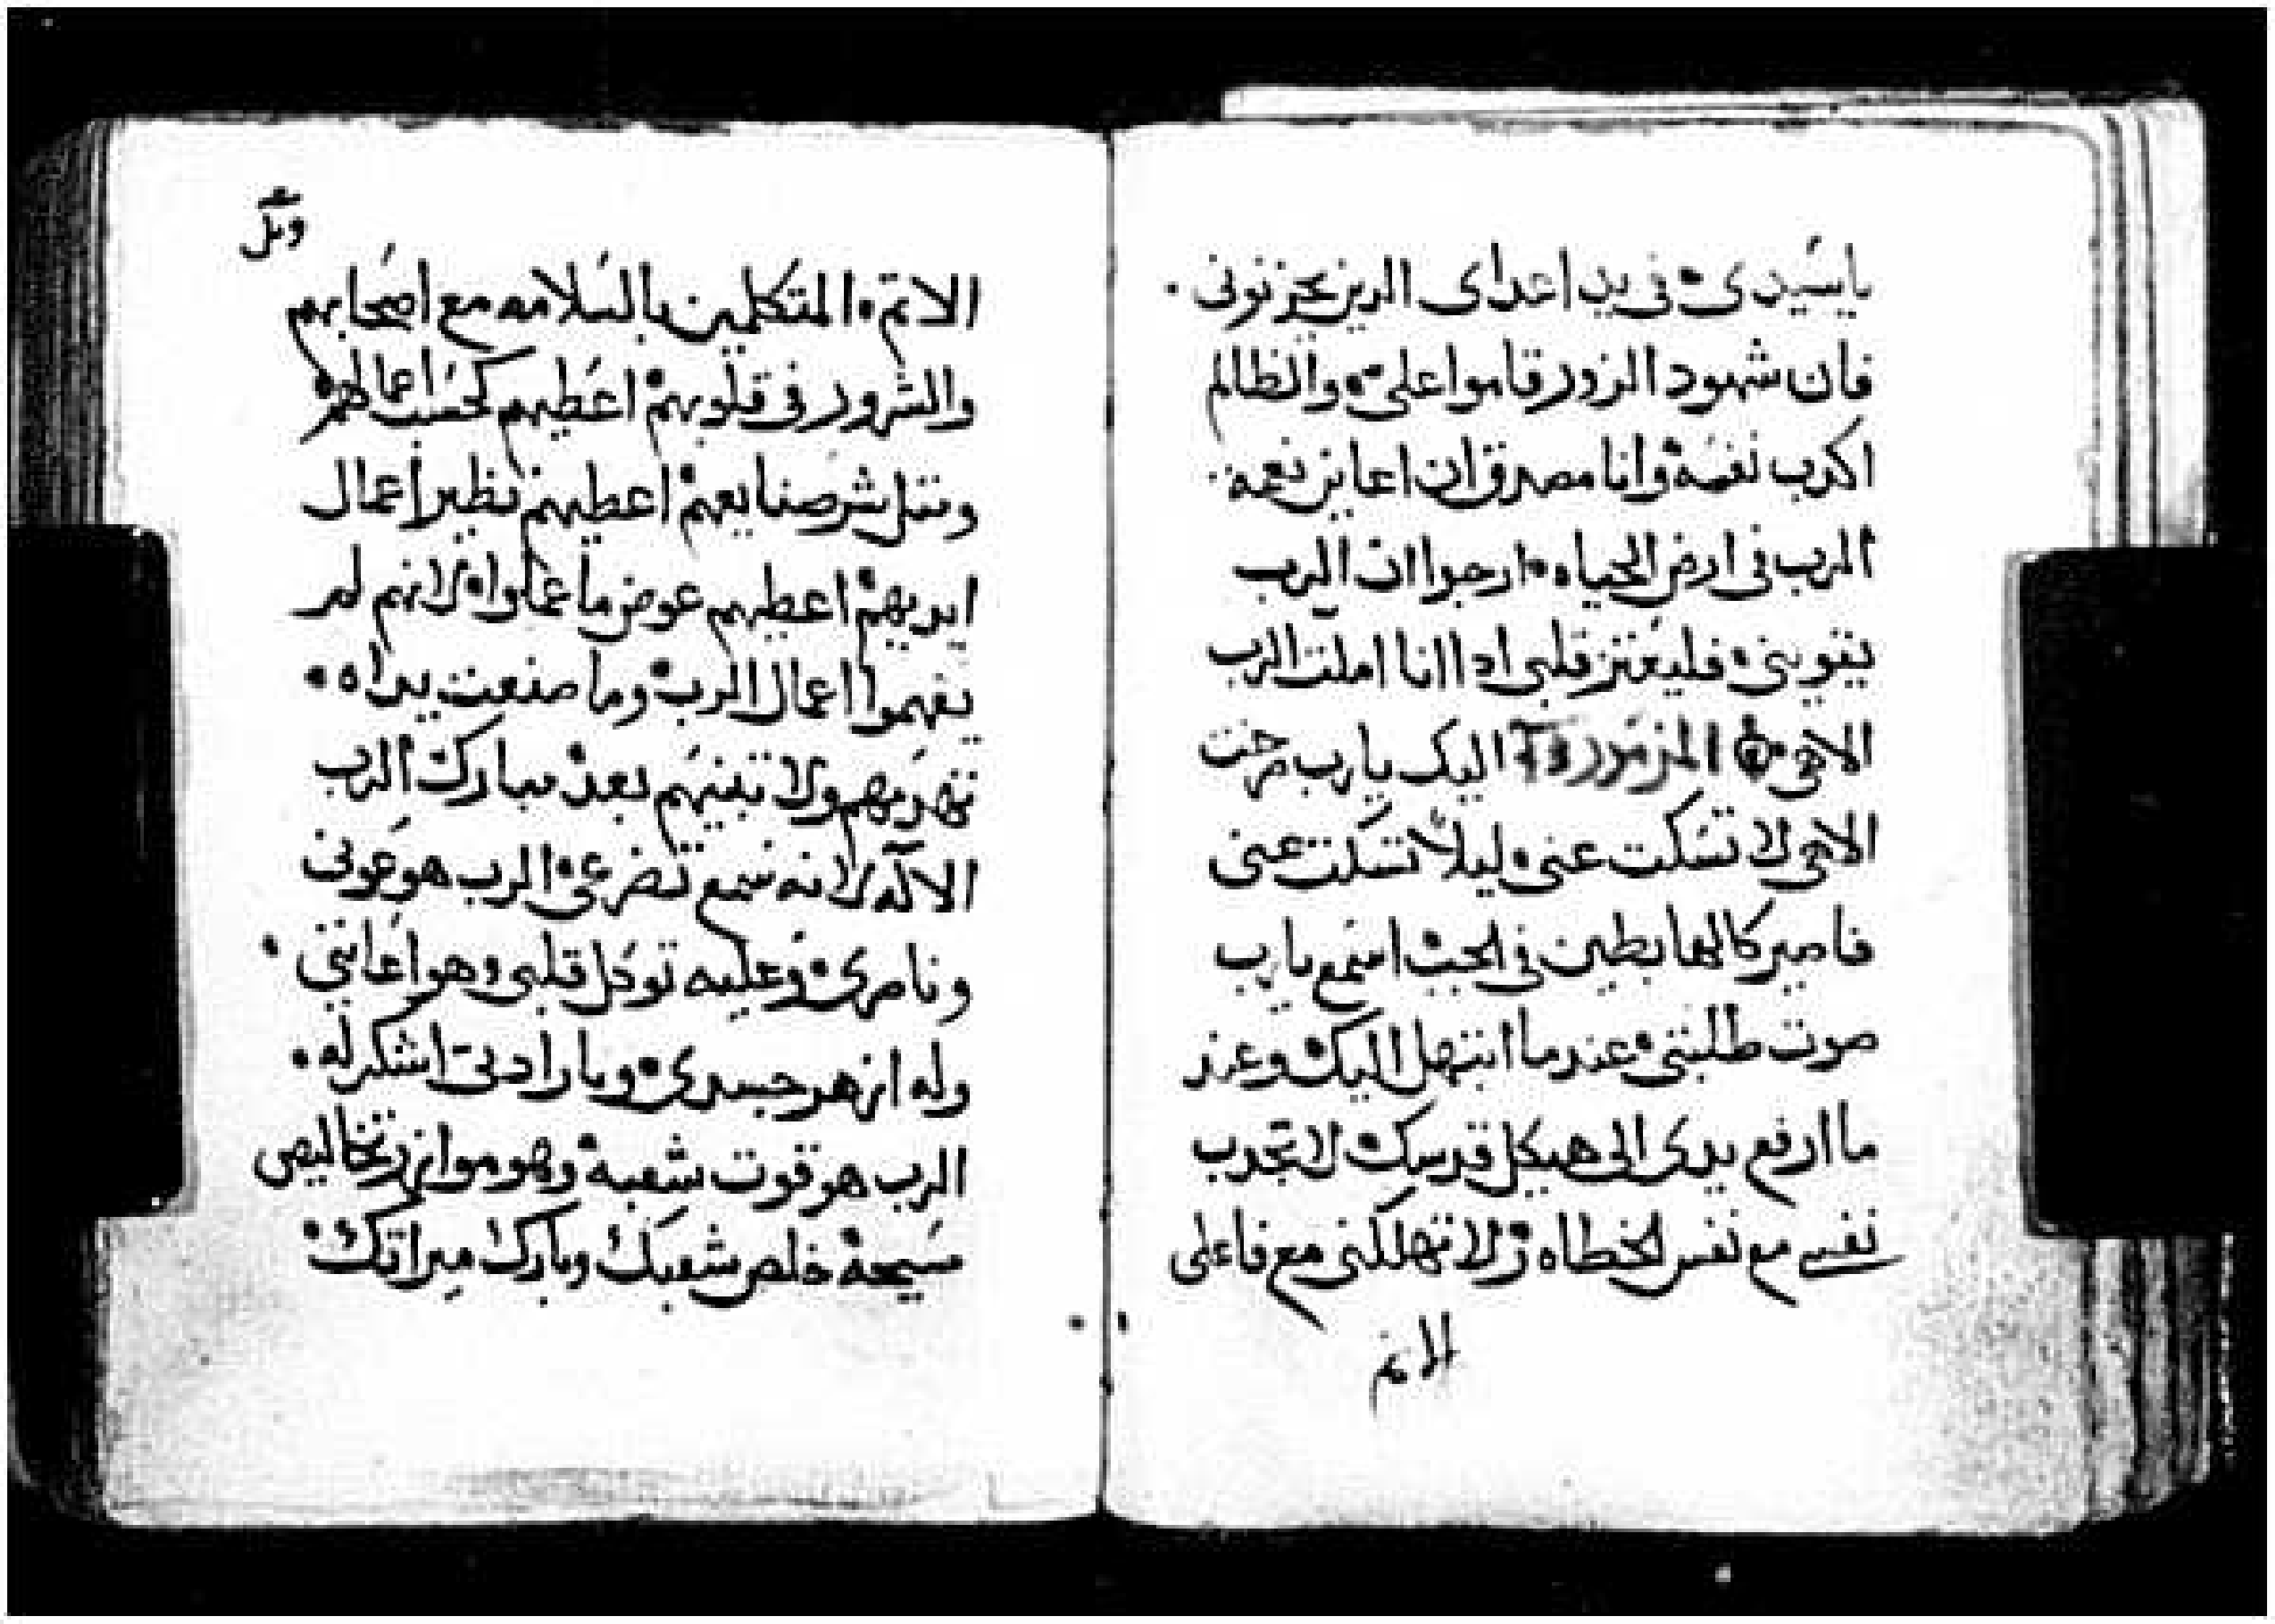 ياسيدى في يد اعداى الدين يحزنونى
فان شهود الزور قاموا على والظالم
اكدب نفسه وانا مصدق ان اعاين نعمه
الرب في ارض الحياه ارجوا ان الرب
يقوينى فليعتز قلبى ادا انا املت الرب
الاهى المزمور اليك يارب صرخت
الاهى لا تسكت عنى ليلا تسكت عنى
فاصير كالهابطين في الجب اسمع يارب
صوت طلبتى عندما ابتهل اليك وعند
ما ارفع يدى الى هيكل قدسك لا تجدب
نفسى مع نفس الخطاه ولا تهلكنى مع فاعلى
الاتم
الاتم المتكلمين بالسلامه مع اصحابهم
والشرور في قلوبهم اعطيهم كحسب اعمالهم
ومتل شر صنايعهم اعطيهم نظير اعمال
ايديهم اعطيهم عوض ما عملوا لانهم لم
يفهموا اعمال الرب وما صنعت يداه
تهدمهم ولا تبنيهم بعد مبارك الرب
الاله لانه سمع تضرعى الرب هو عونى
وناصرى وعليه توكل قلبى وهو اعاننى
وله ازهر جسدى وبارادتى اشكر له
الرب هو قوت شعبه وهو موازر تخاليص
مسيحه خلص شعبك وبارك ميراتك